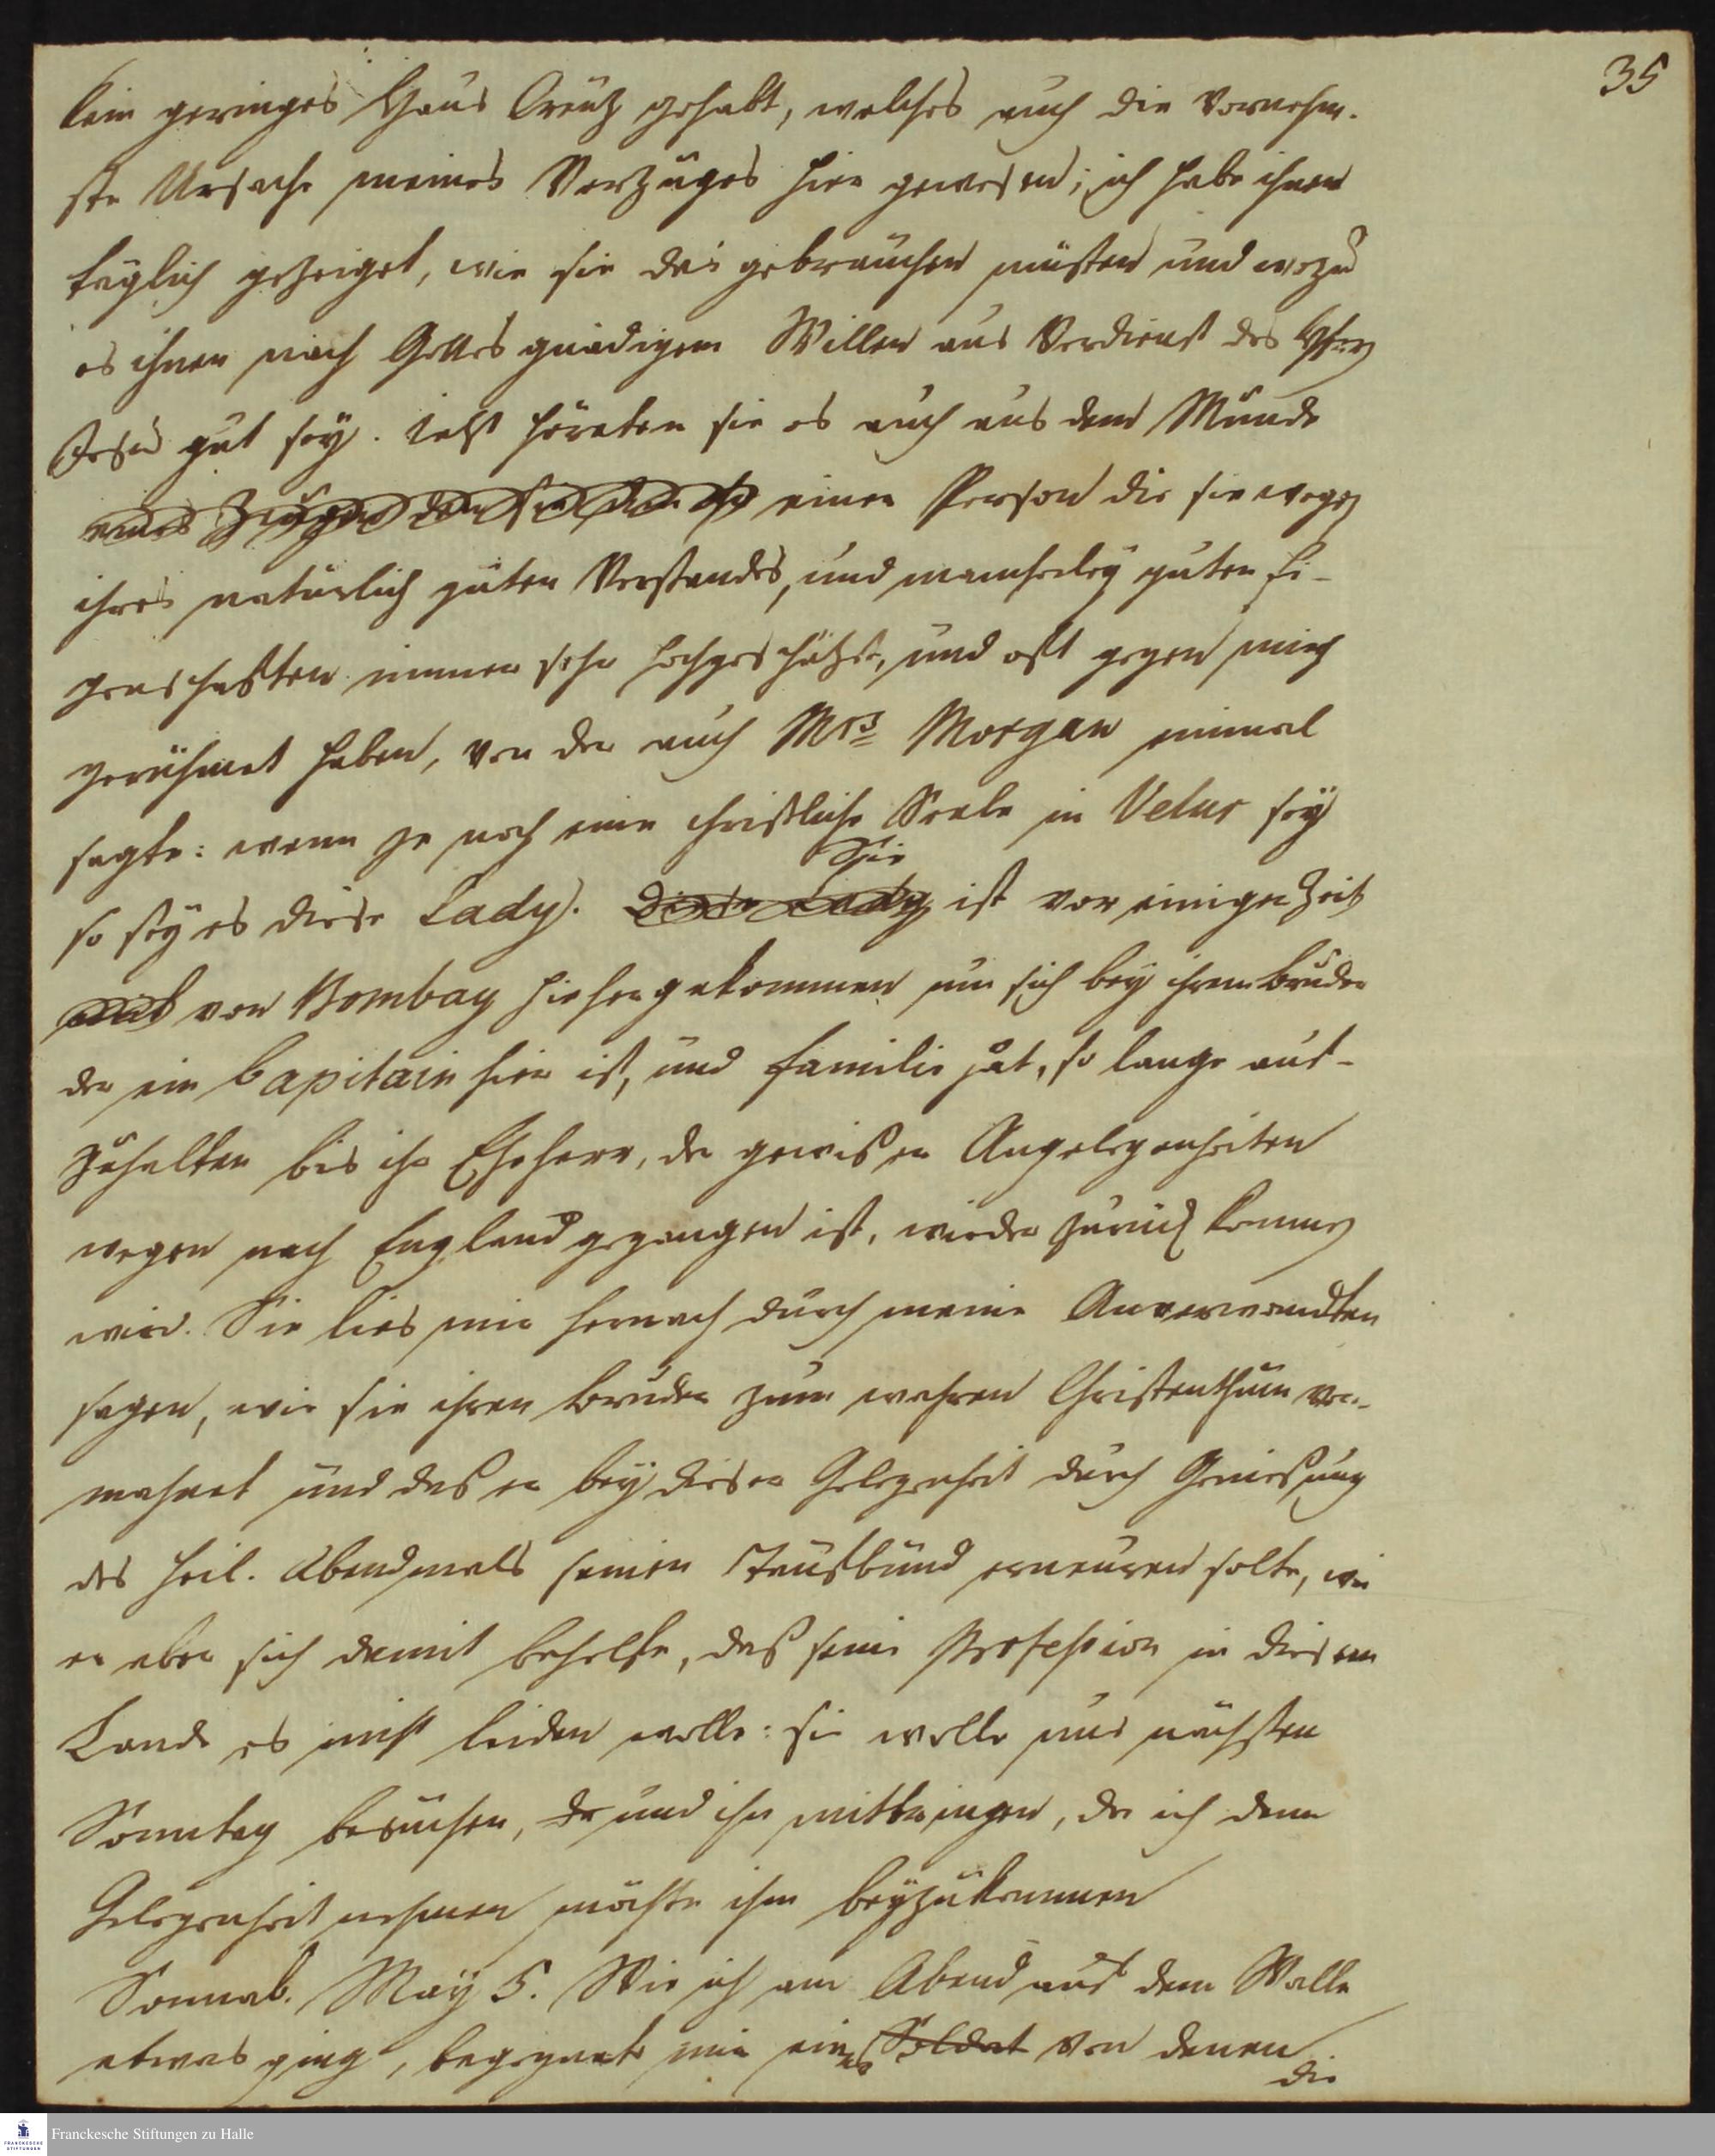 35
kein geringes Haus Creuz gehabt, welches auch die vornehm-
ste Ursache meines Verzuges hier gewesen; ich habe ihnen
täglich gezeiget, wie sie das gebrauchen müsten und wozu
es ihnen nach Gottes gnädigem Willen aus Verdienst des Herrn
Jesu gut sey. Jetzt höreten sie es auch aus dem Munde
einer Person die sie wegen
ihres natürlich guten Verstandes, und mancherley guten Ei-
genschaften immer sehr hochgeschätzt, und oft gegen mich
gerühmet haben, von der auch Mrs Morgan einmal
sagte: wenn je noch eine christliche Seele in Velur sey
so sey es diese Lady. Sie
Diese Lady ist vor einiger Zeit
von Bombay hieher gekommen um sich bey ihrem Bruder
der ein Capitain hier ist, und Familie hat, so lange auf-
zuhalten bis ihr Eheherr, der gewisser Angelegenheiten
wegen nach England gegangen ist, wieder zurück kommen
wird. Sie lies mir hernach durch meine Anverwandten
sagen, wie sie ihren Bruder zum wahren Christenthum ver-
mahnet und daß er bey dieser Gelegenheit durch Geniessung
des heil. Abendmals seinen Taufbund erneuren solte, wie
er aber sich damit behelfe, daß seine Profession in diesem
Lande es nicht leiden wolle: sie wolle uns nächsten
Sonntag besuchen, da und ihn mitbringen, da ich denn
Gelegenheit nehmen möchte ihm beyzukommen
Sonnab. May 5. Wie ich am Abend auf dem Walle
etwas ging, begegnete mir einer Soldat von denen
die
Franckesche Stiftungen zu Halle
FRANCKESCHE STIFTUNGEN